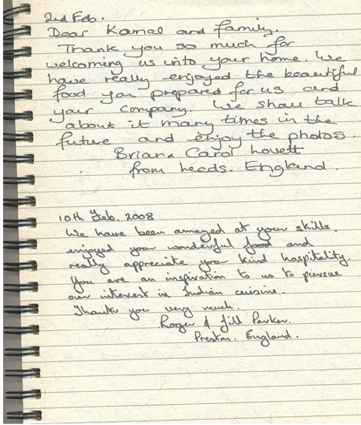 2nd Feb.
Dear Kamal and family,
Thank you so much for
welcoming us into your home. We
have really enjoyed the beautiful
food you prepared for us and
your company. We shall talk
about it many times in the
future and enjoy the photos
Brian & Carol Lovett
from Leeds. England.
10th Feb. 2008
We have been amazed at your skills
enjoyed your wonderful food and
really appreciate your kind hospitality.
You are an inspiration to us to pursue
our interest in Indian cuisine.
Thank you very much.
Roger & Jill Parker.
Preston. England.